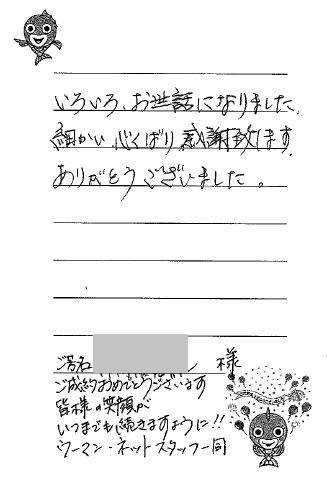 いろいろ、お世話になりました、
細かい心くばり感謝致ます.
ありがとうございました。
ご芳名 様
ご成約おめでとうございます
皆様の笑顔が
いつまでも続きますように!!
ウーマン・ネットスタッフ一同